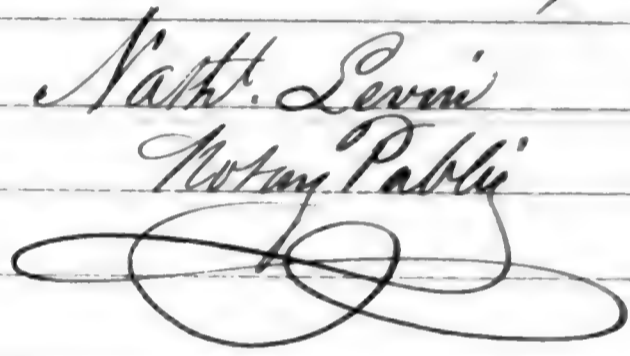 Nathl. Levin
Notary Public